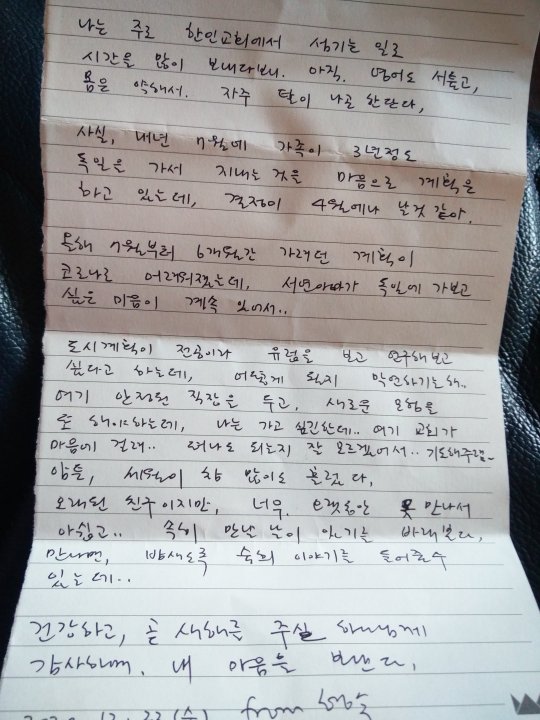 나는 주로 한인교회에서 섬기는 일로
시간을 많이 보내다보니. 아직. 영어도 서툴고,
몸은 약해서. 자주 탈이 나곤 한단다,
사실, 내년 7월에 가족이 3년정도
독일을 가서 지내는것을 마음으로 계획은
하고 있는데, 결정이 4월에나 날것 같아.
올해 7월부터 6개월간 가려던 계획이
코로나로 어려워졌는데, 서연아빠가 독일에 가보고
싶은 마음이 계속 있어서..
도시계획이 전공이라 유럽을 보고 연구해보고
싶다고 하는데, 어떻게 될지 막연하기는해..
여기 안정된 직장을 두고, 새로운 모험을
또 해야하는데, 나는 가고 싶긴한데.. 여기 교회가
마음에 걸려.. 떠나도 되는지 잘 모르겠어서.. 기도해주렴~
암튼, 세월이 참 많이도 흘렀다,
오래된 친구이지만, 너무. 오랫동안 못 만나서
아쉽고.. 속히 만날 날이 오기를 바래본다,
만나면, 밤새도록 숙희 이야기를 들어줄수
있는데..
건강하고, 곧 새해를 주실 하나님께
감사하며. 내 마음을 보낸다,
2020. 12. 23(수) from